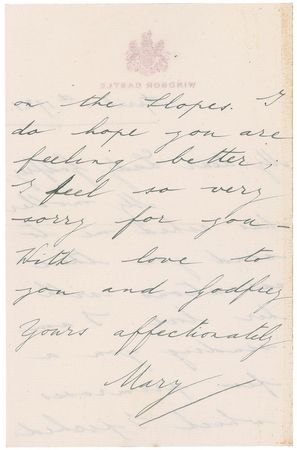 WINDSOR CASTLE
on the Slopes. I
do hope you are
feeling better;
I feel so very
sorry for you –
With love to
you and Godfrey
Yours affectionately
Mary